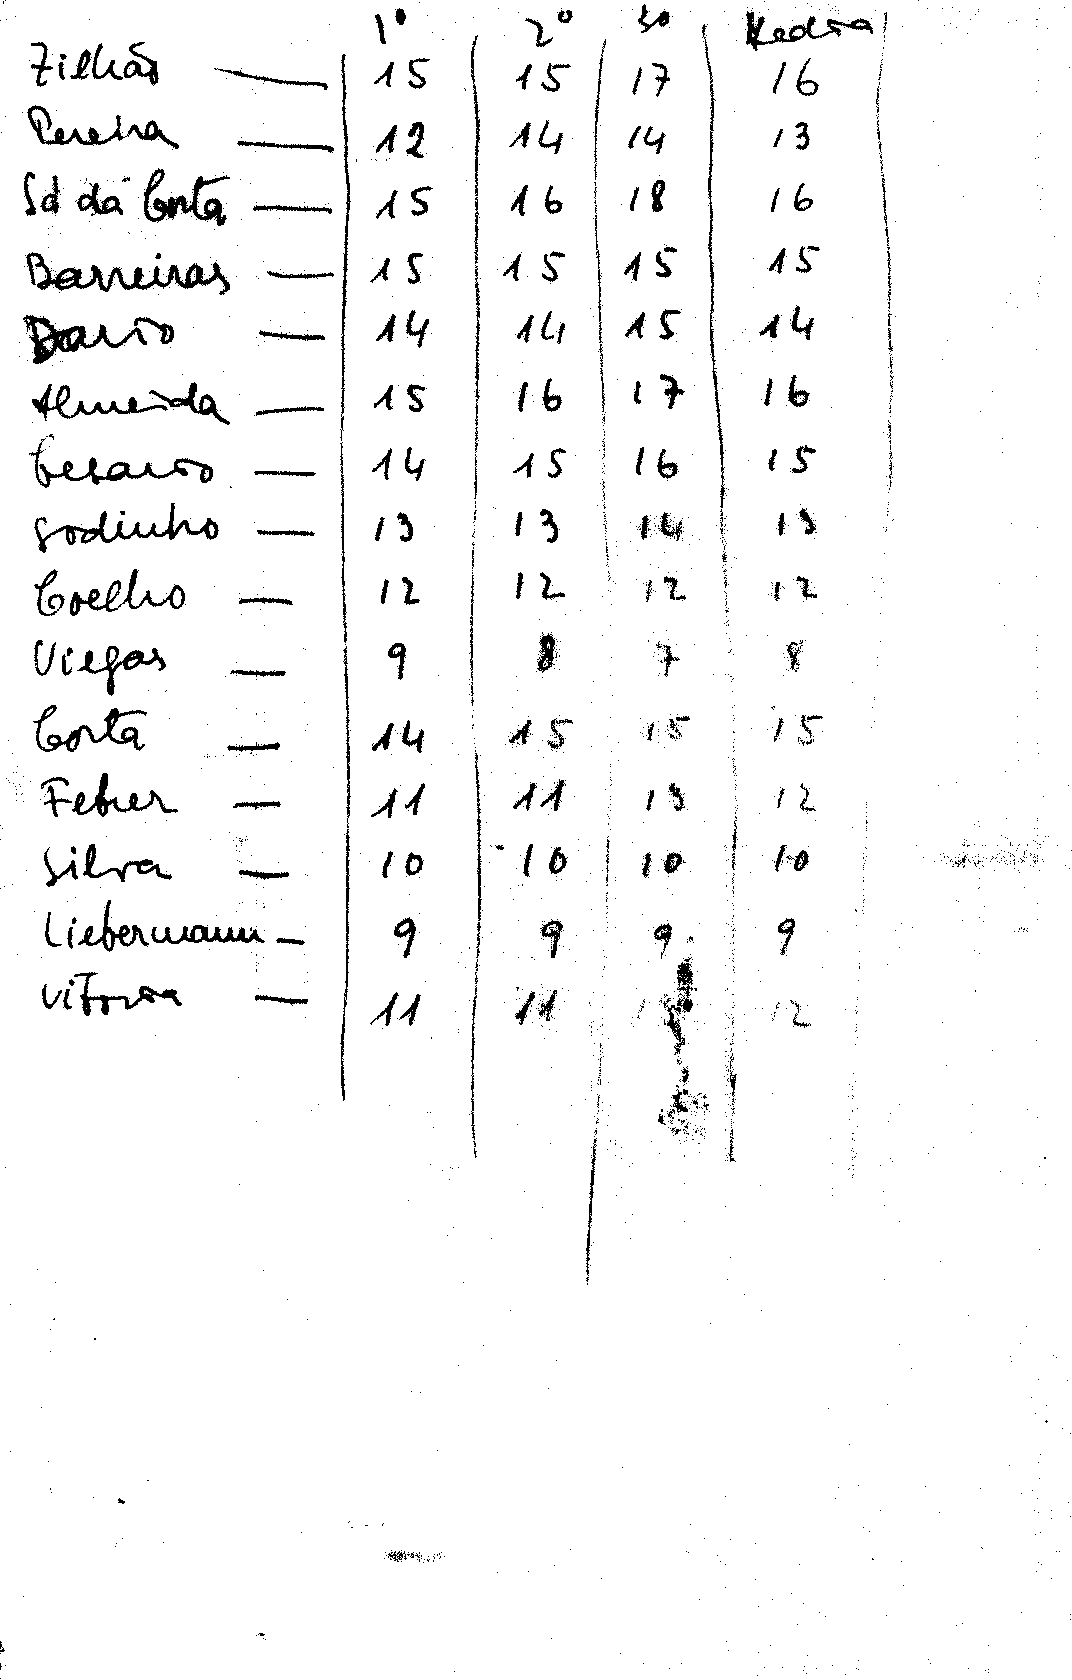 1º 2º 3º Media
Zilhão — 15 15 17 16
Pereira — 12 14 14 13
Sá da Costa — 15 16 18 16
Barreiras — 15 15 15 15
Dario — 14 14 15 14
Almeida — 15 16 17 16
Cesario — 14 15 16 15
Godinho — 13 13 14 13
Coelho — 12 12 12 12
Viegas — 9 8 7 8
Costa — 14 15 15 15
Febrer — 11 11 13 12
Silva — 10 10 10 10
Liebermann — 9 9 9 9
Vitoria — 11 11 12